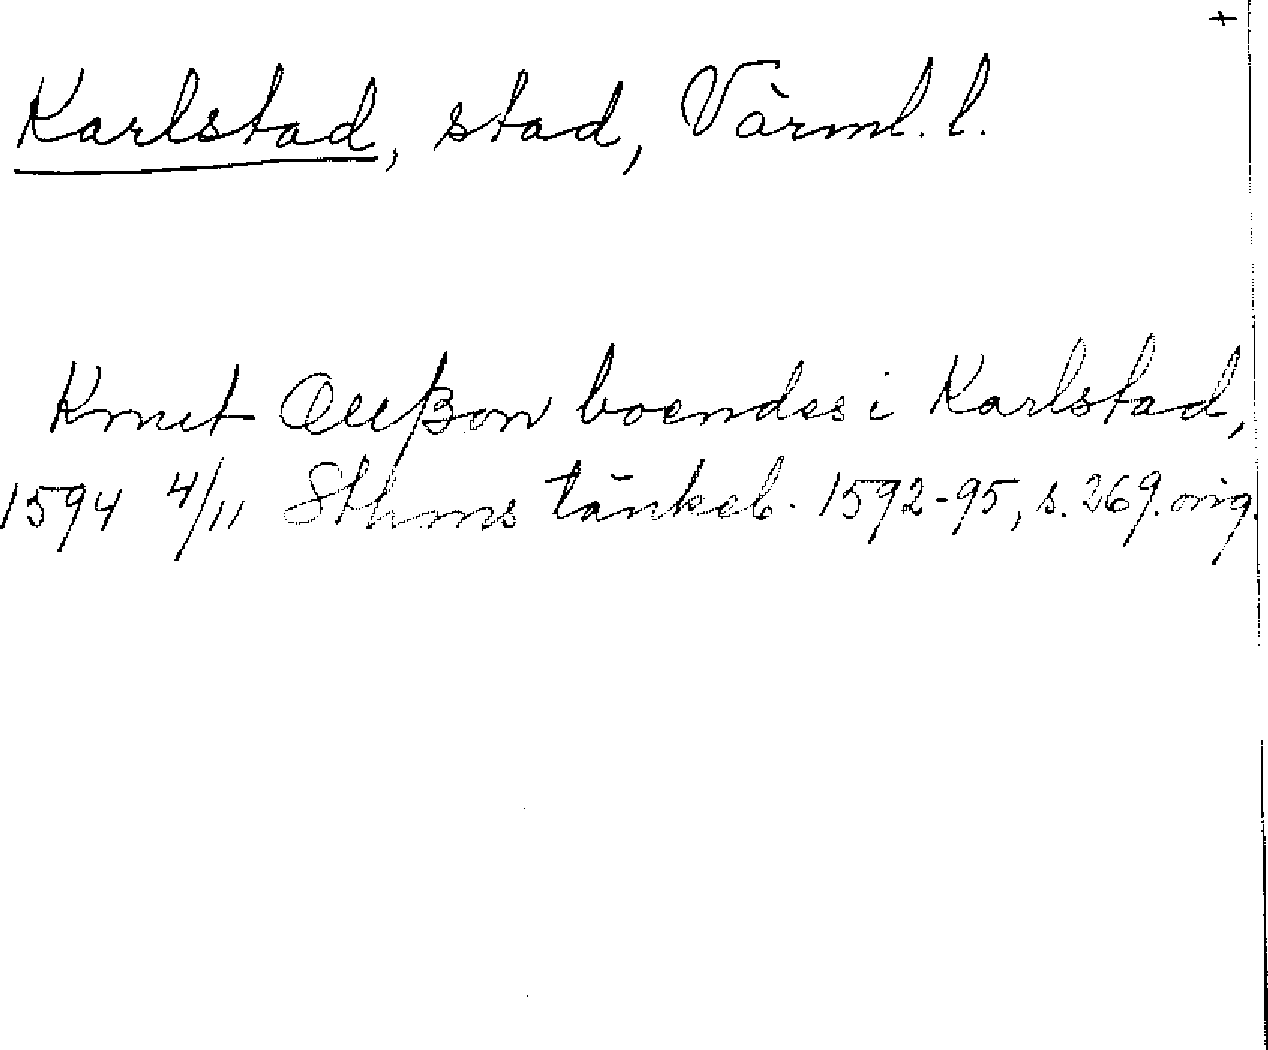 +
Karlstad, stad, Värml. l.
Knut Olufßon boendes i Karlstad,
1594 4/11 Sthms tänkeb. 1592-95, s. 269. orig.